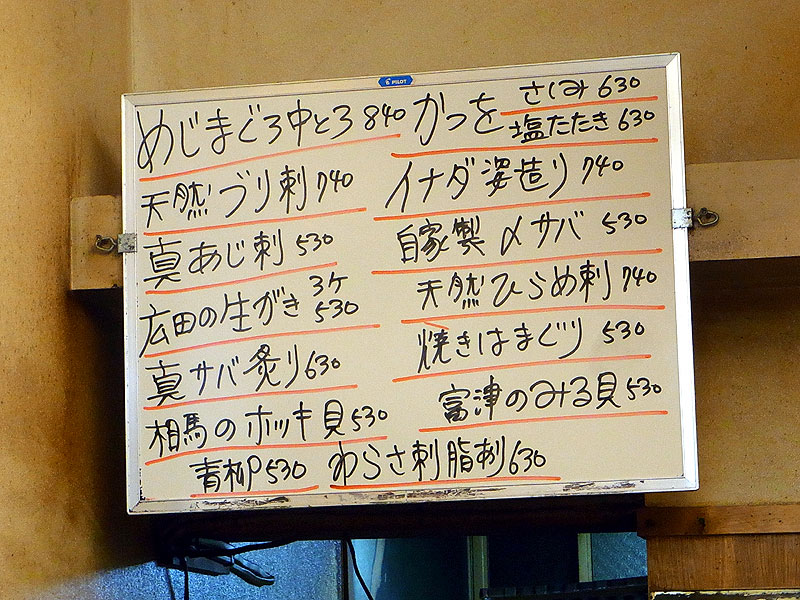 PILOT
めじまぐろ中とろ 840
かつを さしみ 630
塩たたき 630
天然ブリ刺 740
イナダ姿造り 740
真あじ刺 530
自家製〆サバ 530
広田の生がき 3ケ 530
天然ひらめ刺 740
真サバ炙り 630
焼きはまぐり 530
相馬のホッキ貝 530
富津のみる貝 530
青柳 530
わらさ刺 脂のり 630